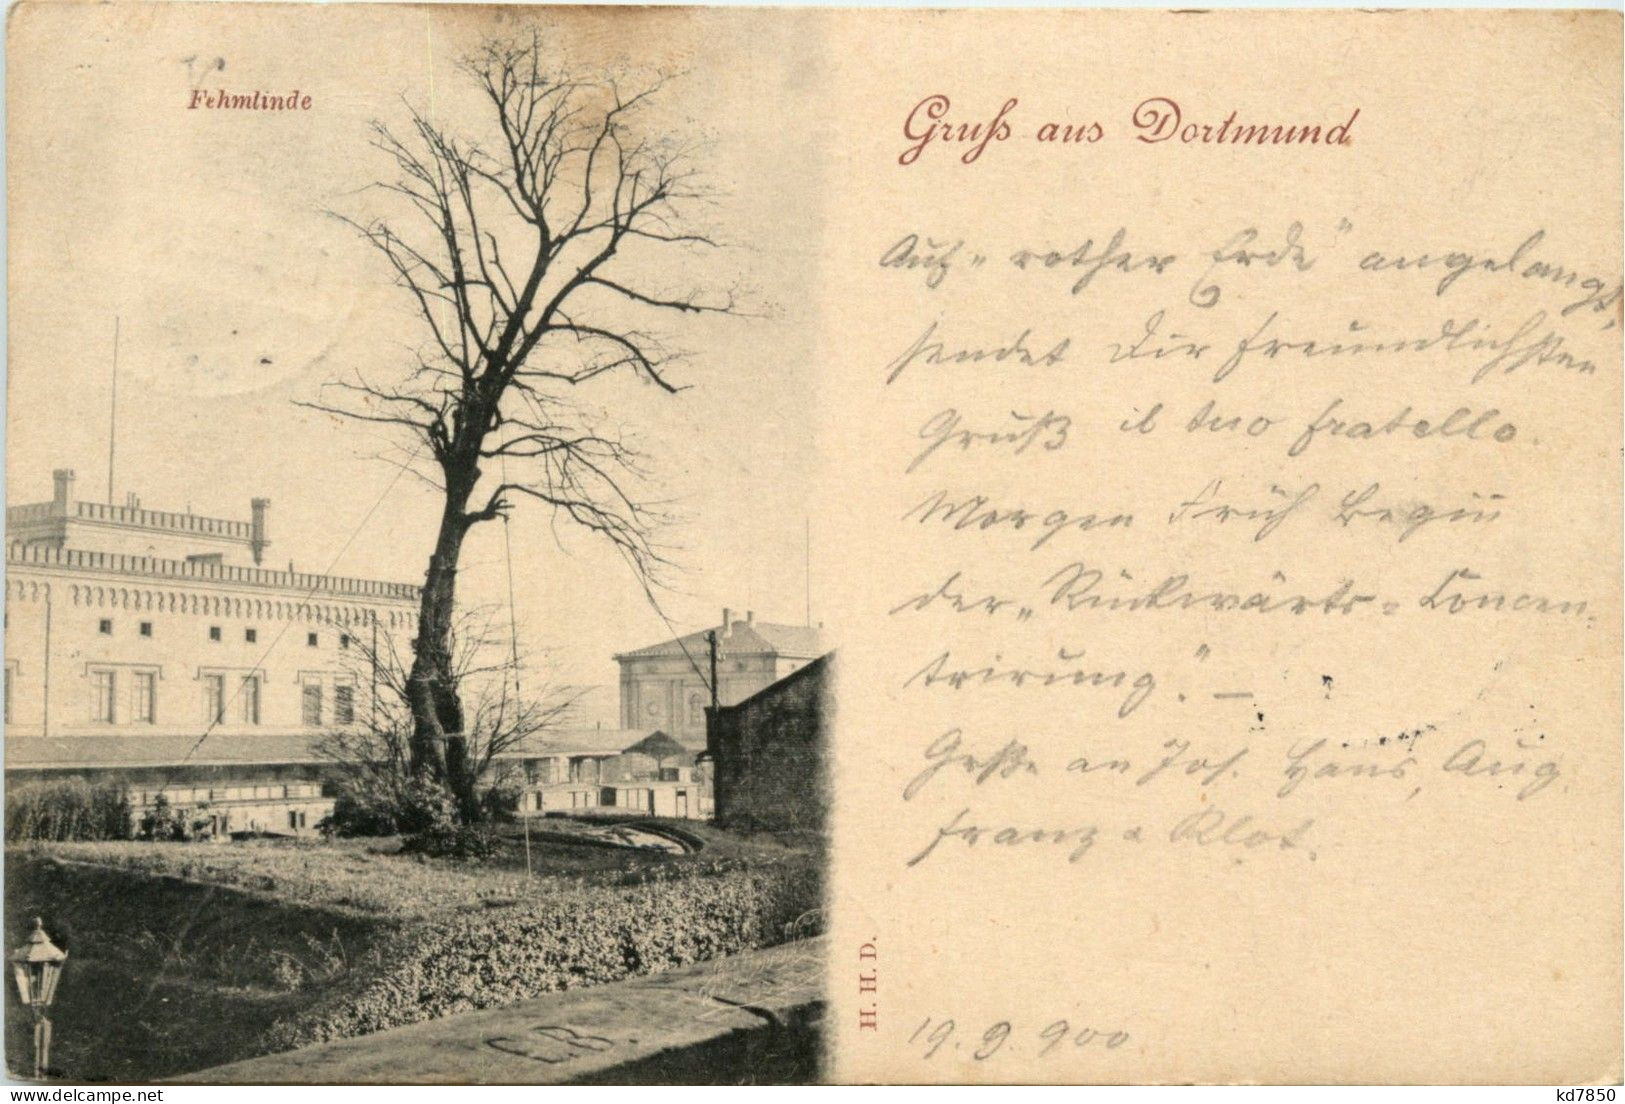 Fehmlinde
Gruß aus Dortmund
Auf „rother Erde" angelangt,
sendet Dir freundlichsten
Gruß il tuo fratello.
Morgen Früh Beginn
der „Rückwärts-Concen-
trirung". —
Grße an Jos. Hans, Aug.
Franz & Klot.
19. 9. 900
H. H. D.
E.B.
delcampe.net
kd7850